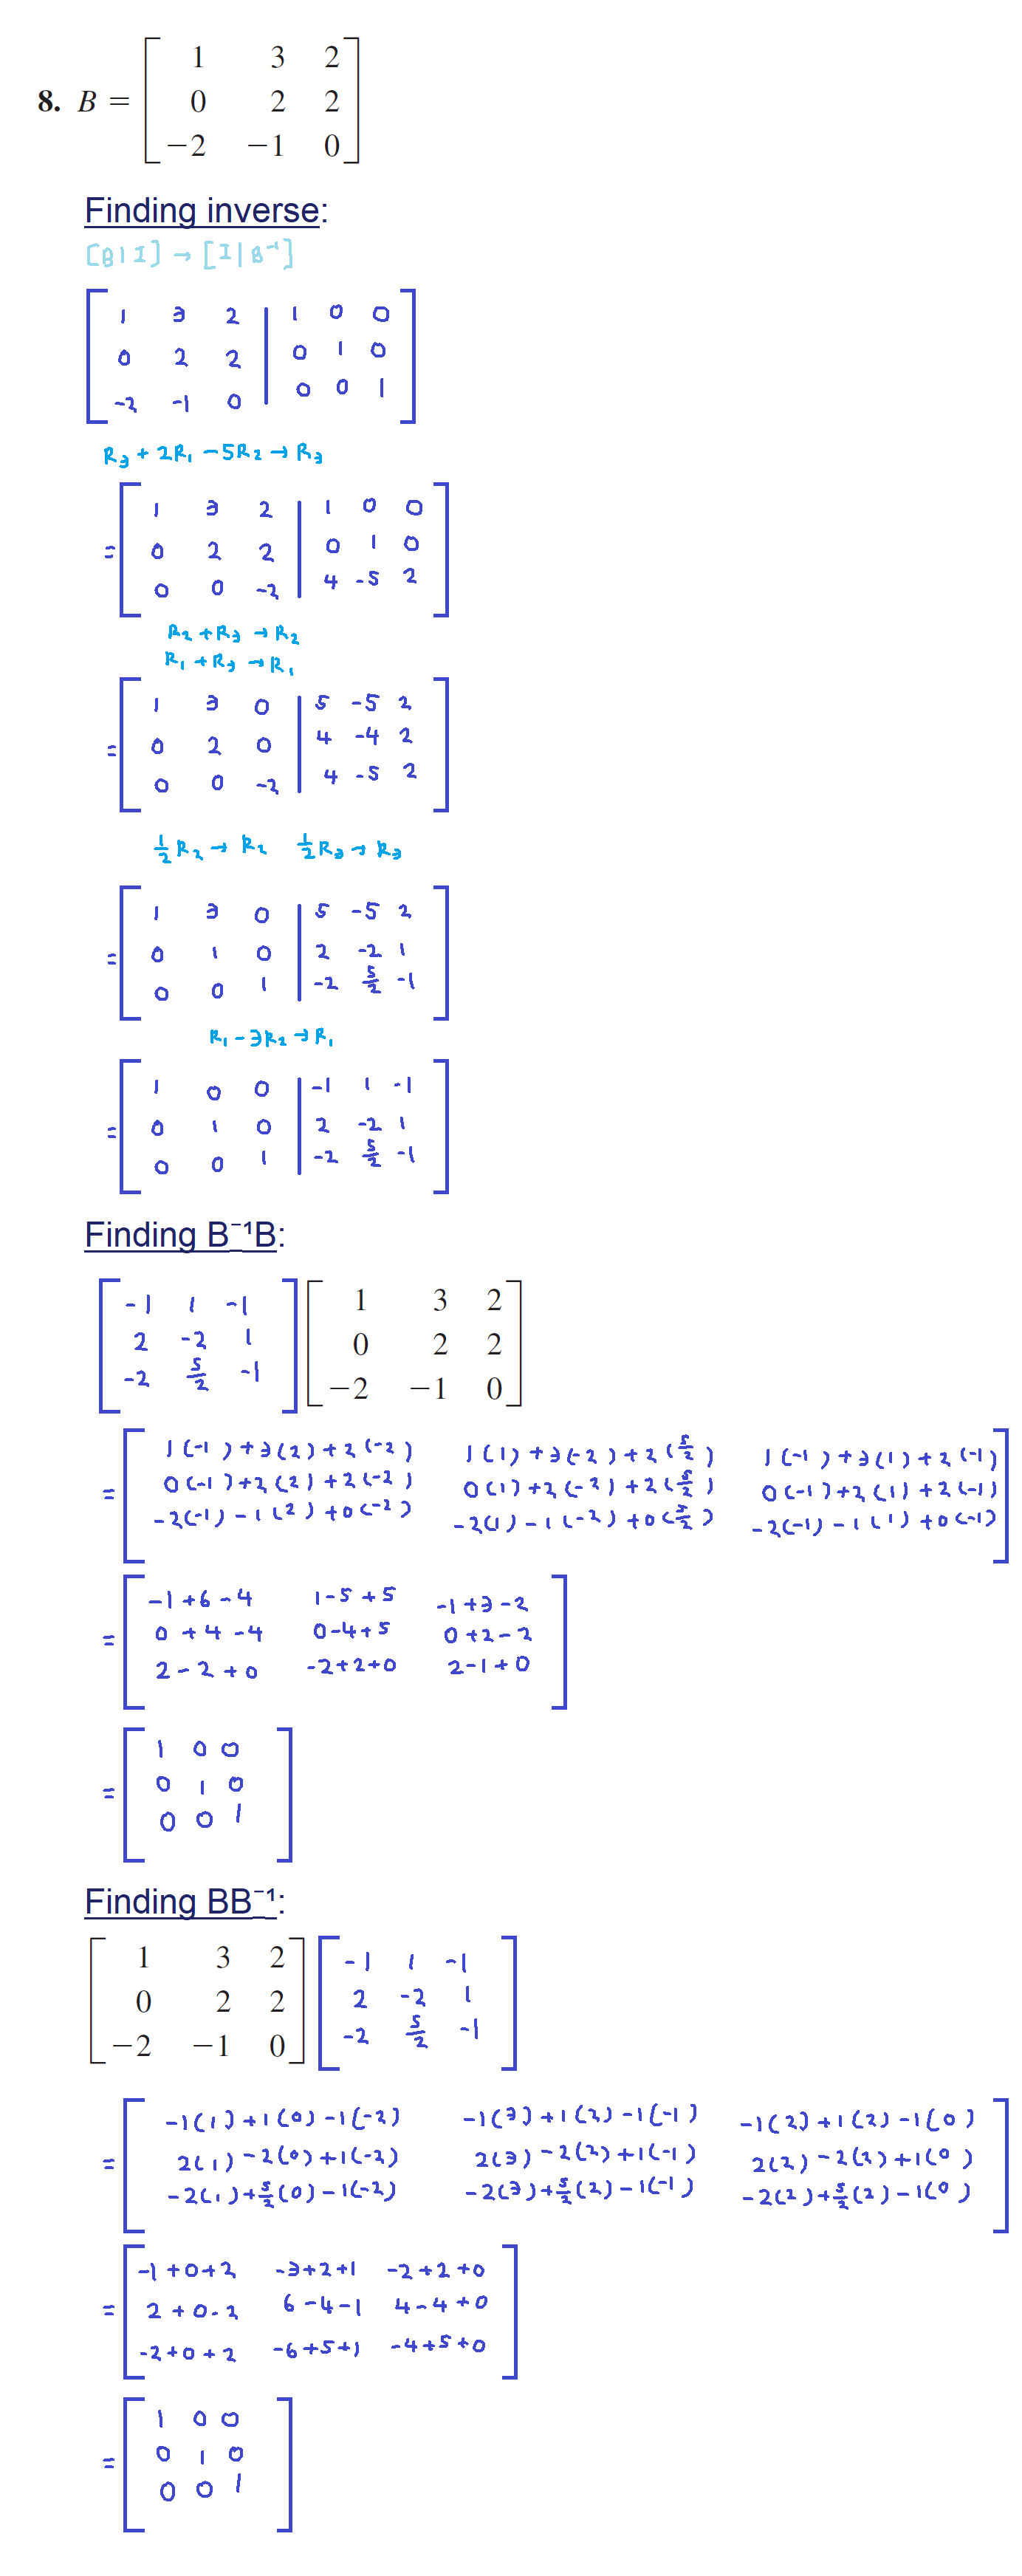 8. B = [ 1 3 2
0 2 2
−2 −1 0 ]
Finding inverse:
[B|I] → [I|B⁻¹]
[ 1 3 2 | 1 0 0
0 2 2 | 0 1 0
-2 -1 0 | 0 0 1 ]
R₃ + 2R₁ - 5R₂ → R₃
= [ 1 3 2 | 1 0 0
0 2 2 | 0 1 0
0 0 -2 | 4 -5 2 ]
R₂ + R₃ → R₂
R₁ + R₃ → R₁
= [ 1 3 0 | 5 -5 2
0 2 0 | 4 -4 2
0 0 -2 | 4 -5 2 ]
1/2 R₂ → R₂ 1/2 R₃ → R₃
= [ 1 3 0 | 5 -5 2
0 1 0 | 2 -2 1
0 0 1 | -2 5/2 -1 ]
R₁ - 3R₂ → R₁
= [ 1 0 0 | -1 1 -1
0 1 0 | 2 -2 1
0 0 1 | -2 5/2 -1 ]
Finding B⁻¹B:
[ -1 1 -1 ] [ 1 3 2 ]
[ 2 -2 1 ] [ 0 2 2 ]
[ -2 5/2 -1 ] [ −2 −1 0 ]
= [ 1(-1) + 3(2) + 2(-2) 1(1) + 3(-2) + 2(5/2) 1(-1) + 3(1) + 2(-1)
0(-1) + 2(2) + 2(-2) 0(1) + 2(-2) + 2(5/2) 0(-1) + 2(1) + 2(-1)
-2(-1) - 1(2) + 0(-2) -2(1) - 1(-2) + 0(5/2) -2(-1) - 1(1) + 0(-1) ]
= [ -1+6-4 1-5+5 -1+3-2
0+4-4 0-4+5 0+2-2
2-2+0 -2+2+0 2-1+0 ]
= [ 1 0 0
0 1 0
0 0 1 ]
Finding BB⁻¹:
[ 1 3 2 ] [ -1 1 -1 ]
[ 0 2 2 ] [ 2 -2 1 ]
[ −2 −1 0 ] [ -2 5/2 -1 ]
= [ -1(1) + 1(0) - 1(-2) -1(3) + 1(2) - 1(-1) -1(2) + 1(2) - 1(0)
2(1) - 2(0) + 1(-2) 2(3) - 2(2) + 1(-1) 2(2) - 2(2) + 1(0)
-2(1) + 5/2(0) - 1(-2) -2(3) + 5/2(2) - 1(-1) -2(2) + 5/2(2) - 1(0) ]
= [ -1+0+2 -3+2+1 -2+2+0
2+0-2 6-4-1 4-4+0
-2+0+2 -6+5+1 -4+5+0 ]
= [ 1 0 0
0 1 0
0 0 1 ]